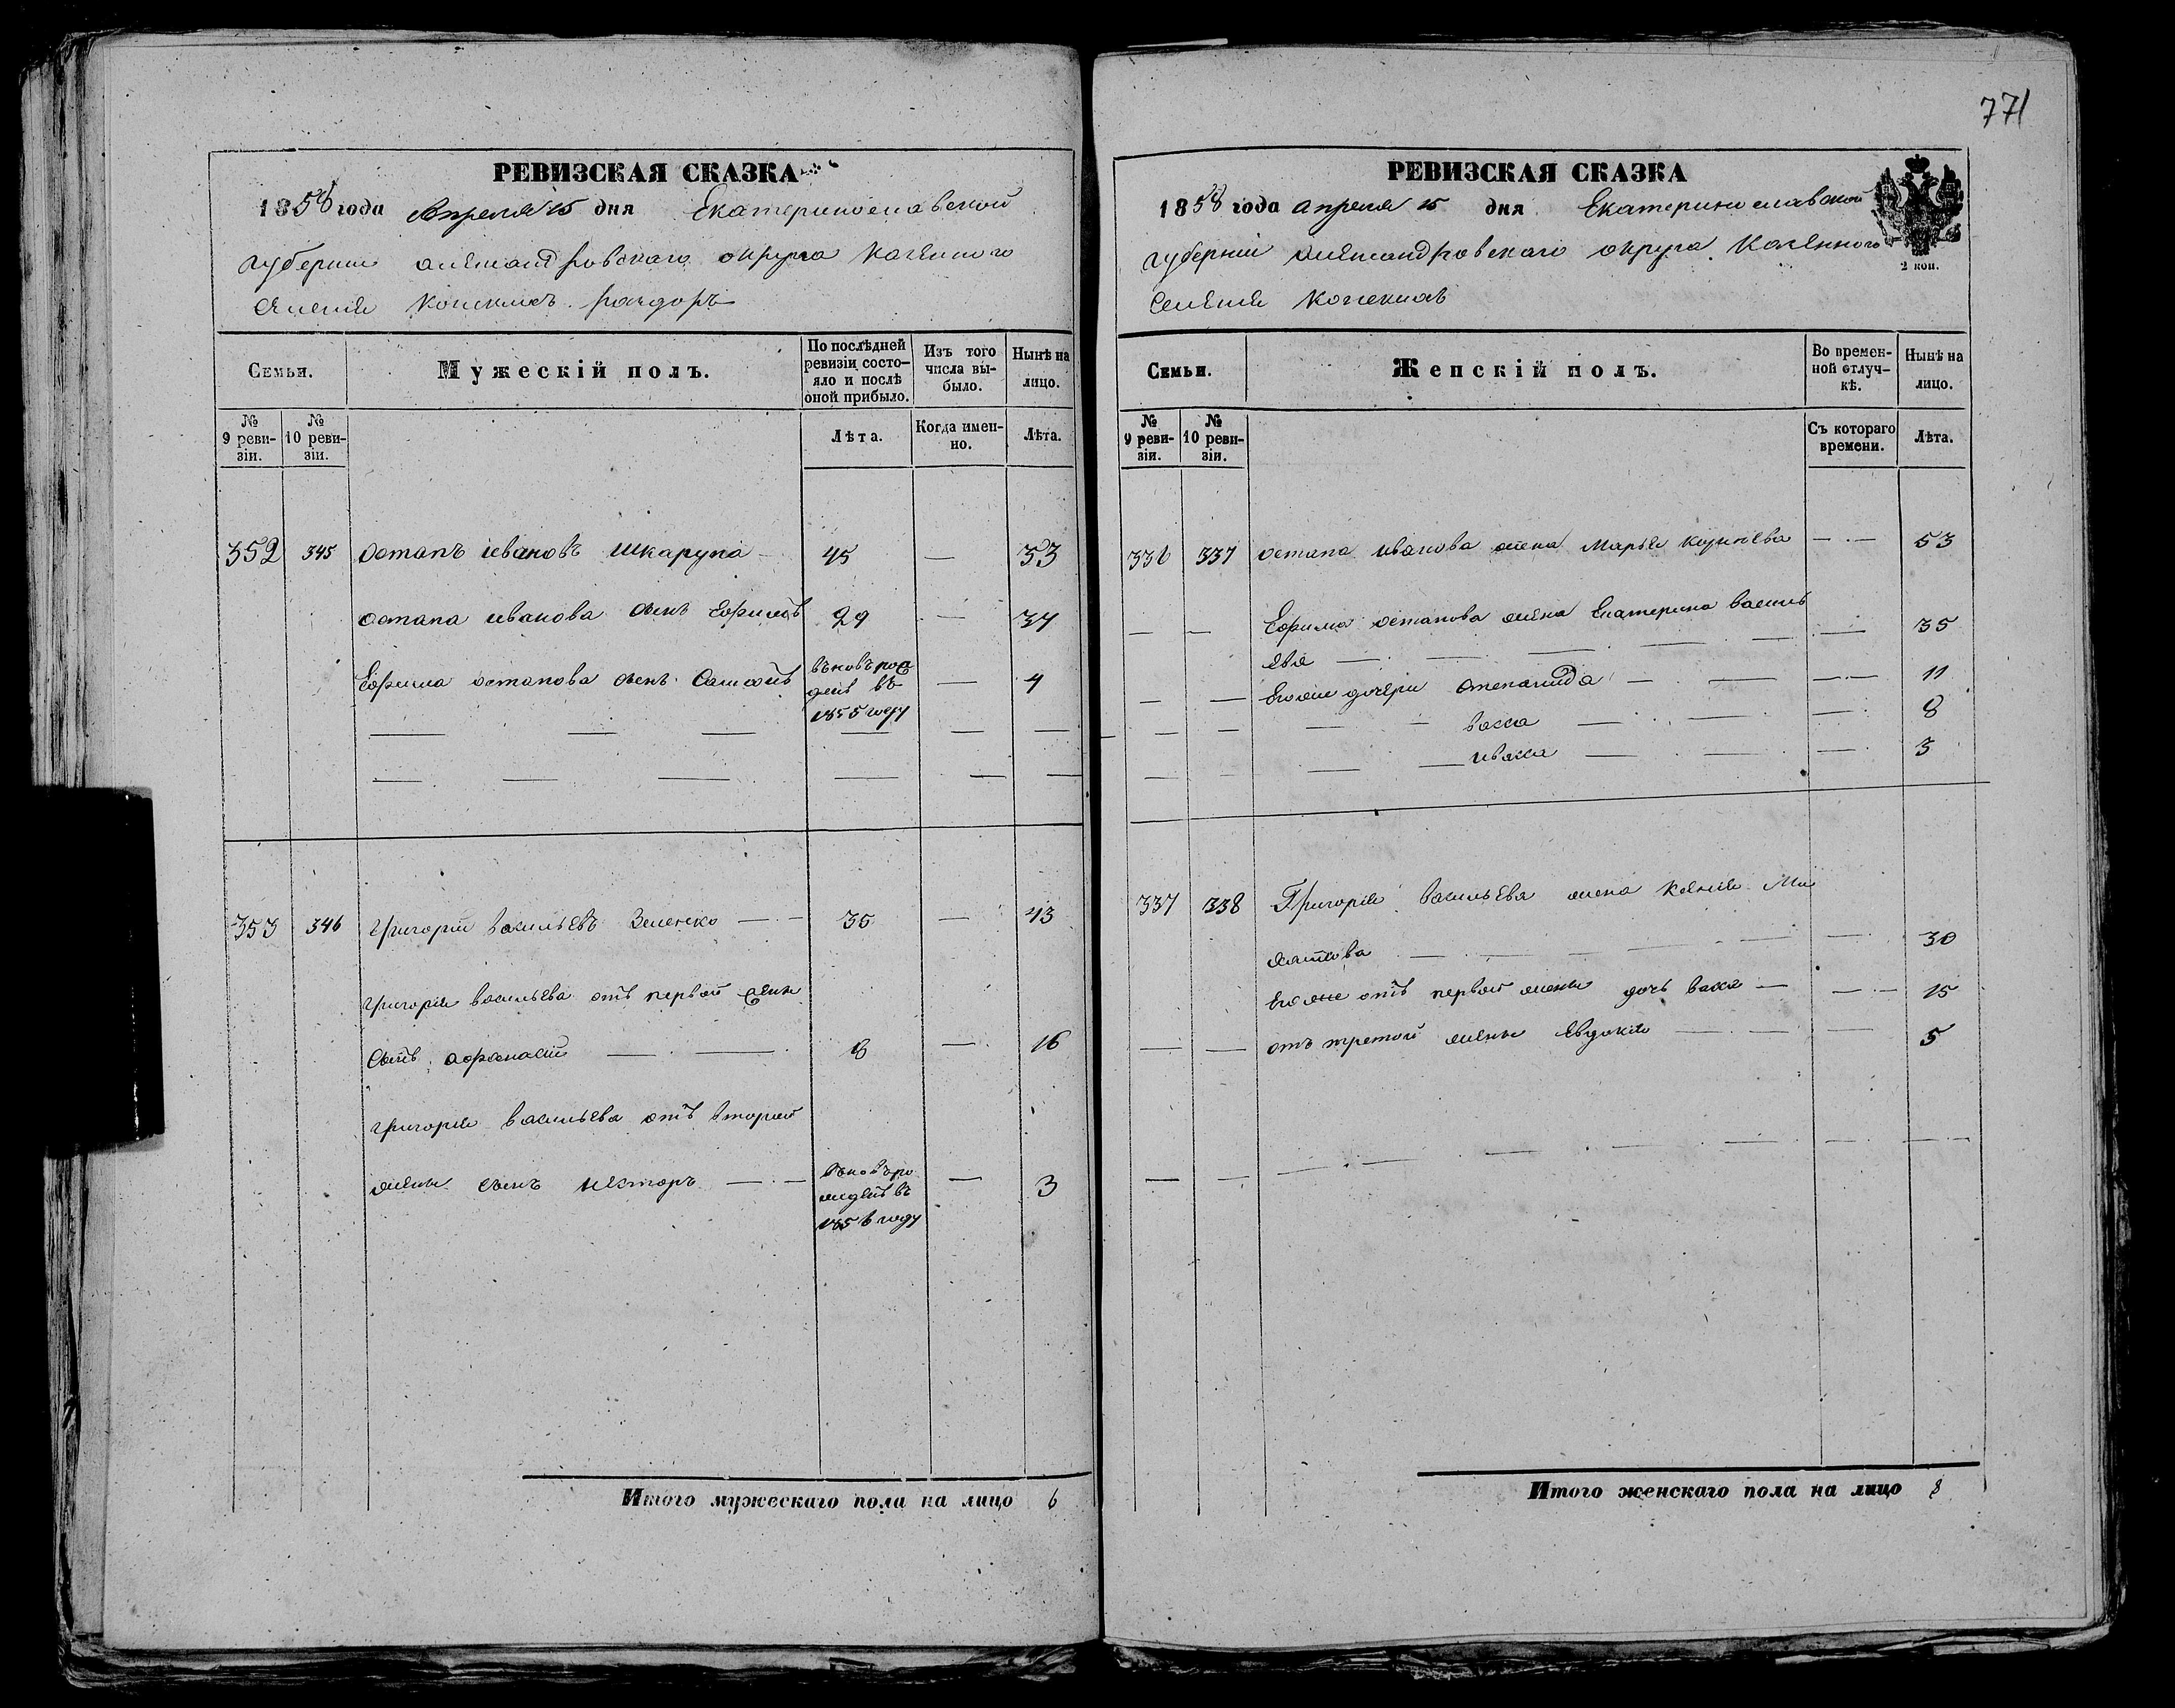 771
РЕВИЗСКАЯ СКАЗКА
1858 года Апреля 15 дня Екатеринославской
губернии александровскаго округа казенного
селения конскихъ раздоръ
Семьи. Мужескій полъ. По послѣдней ревизіи состояло и послѣ оной прибыло. Изъ того числа выбыло. Нынѣ на лицо.
№ 9 ревизіи. № 10 ревизіи. Лѣта. Когда именно. Лѣта.
352 345 Остапъ ивановъ Шкарупа 45 — 53
Остапа иванова сынъ Ефимъ 29 — 37
Ефима остапова сынъ Самсонъ вновь рожденъ въ 1855 году — 4
353 346 Григорій васильевъ Зеленско — 35 — 43
Григорія васильева отъ первой жены
сынъ афанасій — 8 — 16
Григорія васильева отъ второй
жены сынъ Несторъ — вновь рожденъ въ 1856 году — 3
Итого мужескаго пола на лицо 6
РЕВИЗСКАЯ СКАЗКА
1858 года апреля 15 дня Екатеринославской
губерній александровскаго округа казенного
2 коп.
селения конскихъ
Семьи. Женскій полъ. Во временной отлучкѣ. Нынѣ на лицо.
№ 9 ревизіи. № 10 ревизіи. Съ котораго времени. Лѣта.
336 337 остапа иванова жена Марья — 53
Ефима остапова жена Екатерина василь
ева — 35
Его же дочери степанида — 11
васса — 8
3
337 338 Григорія васильева жена Ксенія
— 30
Его же отъ первой жены дочь васса — 15
отъ третой жены Евдокия — 5
Итого женскаго пола на лицо 8